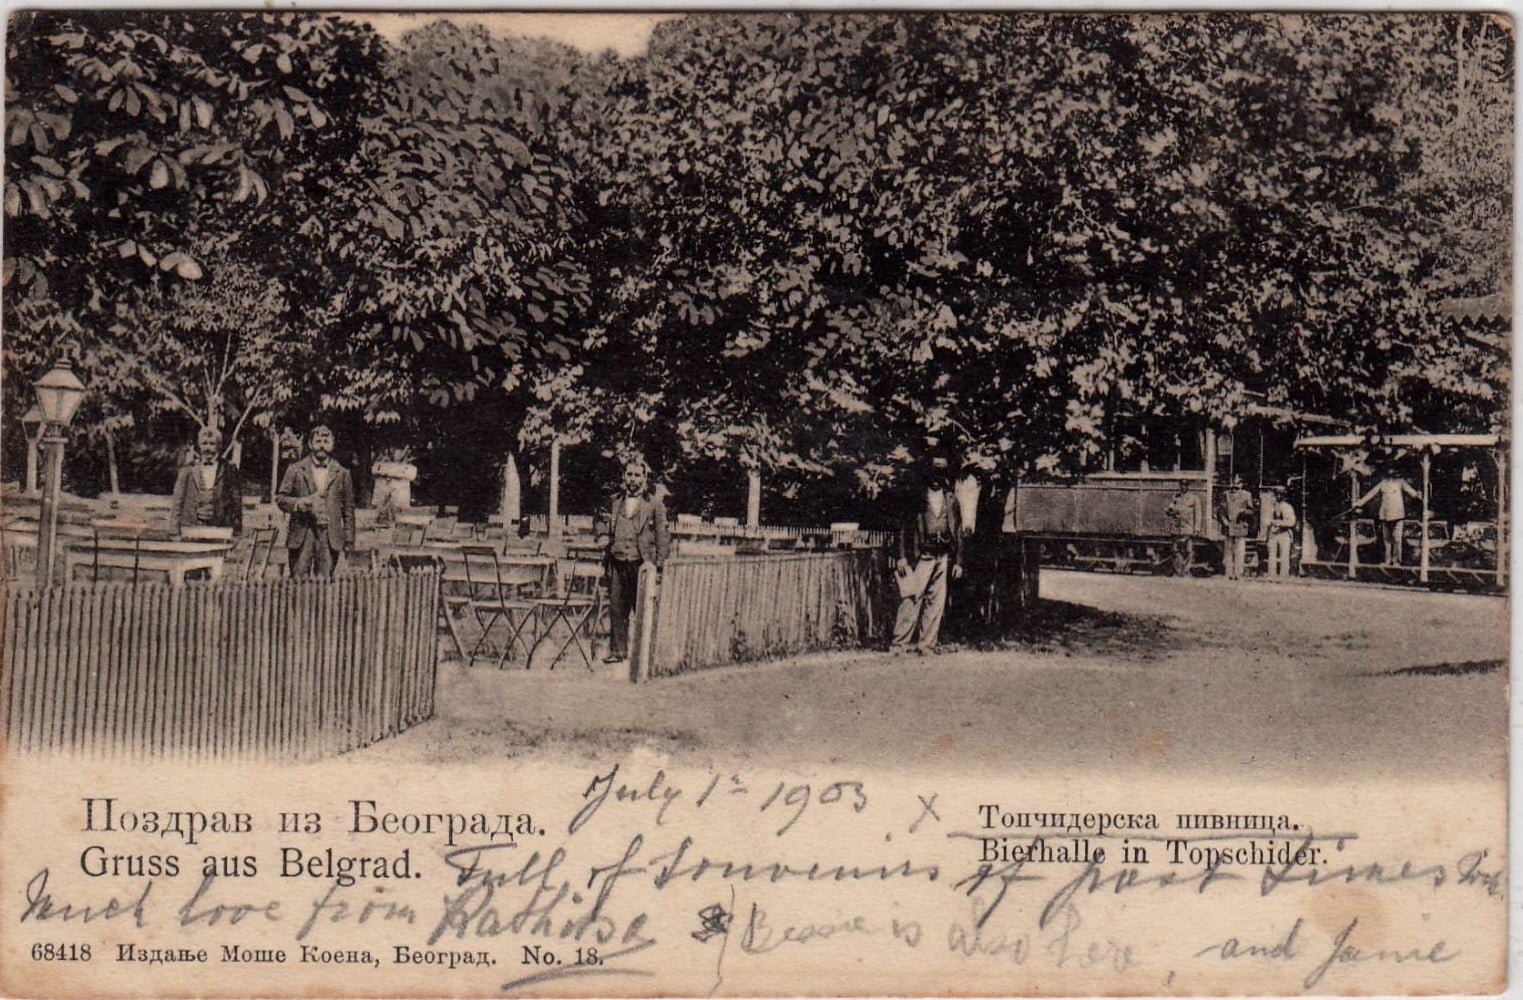 July 1st 1903 X
Поздрав из Београда. Топчидерска пивница.
Gruss aus Belgrad. Bierhalle in Topschider.
Full of souvenirs of past times
Much love from Bessie is also here, and Jamie
68418 Издање Моше Коена, Београд. No. 18.